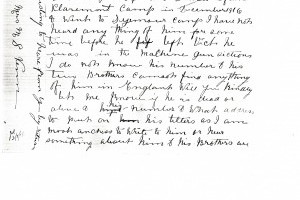 Claremont Camp in December 1916
& Went to Seymour Camp I have not
heard any thing of him for some
time before he left
was in the Machine Gun section
I do not know his number & his
Brothers cannot find anything
of him in England Will you kindly
let me know if he is dead or
alive & number & What address
to put on his letters as I am
most anxious to Write to him or hear
something about him & his Brothers are
hear from you by return
Mrs M S